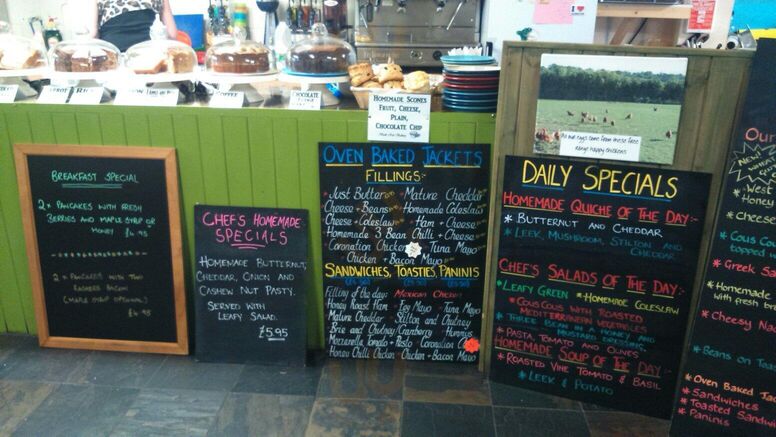 COFFEE
CHOCOLATE
HOMEMADE SCONES
FRUIT, CHEESE,
PLAIN,
CHOCOLATE CHIP
BREAKFAST SPECIAL
2 x PANCAKES WITH FRESH
BERRIES AND MAPLE SYRUP OR
HONEY
£4.95
2 x PANCAKES WITH TWO
RASHERS BACON
(MAPLE SYRUP OPTIONAL)
CHEF'S HOMEMADE
SPECIALS
HOMEMADE BUTTERNUT,
CHEDDAR, ONION AND
CASHEW NUT PASTY.
SERVED WITH
LEAFY SALAD.
£5.95
OVEN BAKED JACKETS
FILLINGS:
Just Butter Mature Cheddar
Cheese + Beans Homemade Coleslaw
Cheese + Coleslaw Ham + Cheese
Homemade 3 Bean Chilli + Cheese
Coronation Chicken Tuna Mayo
Chicken + Bacon Mayo
SANDWICHES, TOASTIES, PANINIS
Filling of the day: MEXICAN CHICKEN
Honey Roast Ham Egg Mayo Tuna Mayo
Mature Cheddar Stilton and Chutney
Brie and Chutney/Cranberry Hummus
Mozzarella Tomato + Pesto Coronation
Honey Chilli Chicken Chicken + Bacon Mayo
As our eggs come from these free
range happy chickens
DAILY SPECIALS
HOMEMADE QUICHE OF THE DAY:
* BUTTERNUT AND CHEDDAR
* LEEK, MUSHROOM, STILTON AND
CHEDDAR
CHEF'S SALADS OF THE DAY:
*LEAFY GREEN *HOMEMADE COLESLAW
* COUS COUS WITH TOASTED
MEDITERRANEAN VEGETABLES
* THREE BEAN IN A HONEY AND
MUSTARD DRESSING
* PASTA, TOMATO AND OLIVES
HOMEMADE SOUP OF THE DAY:
* ROASTED VINE TOMATO & BASIL
* LEEK & POTATO
West
Honey
*Cheese
* Cous Cous
* Greek Sa
* Homemade
with fresh
* Cheesy Na
* Beans on Toas
* Oven Baked Jac
* Sandwiches
* Toasted Sandw
* Paninis